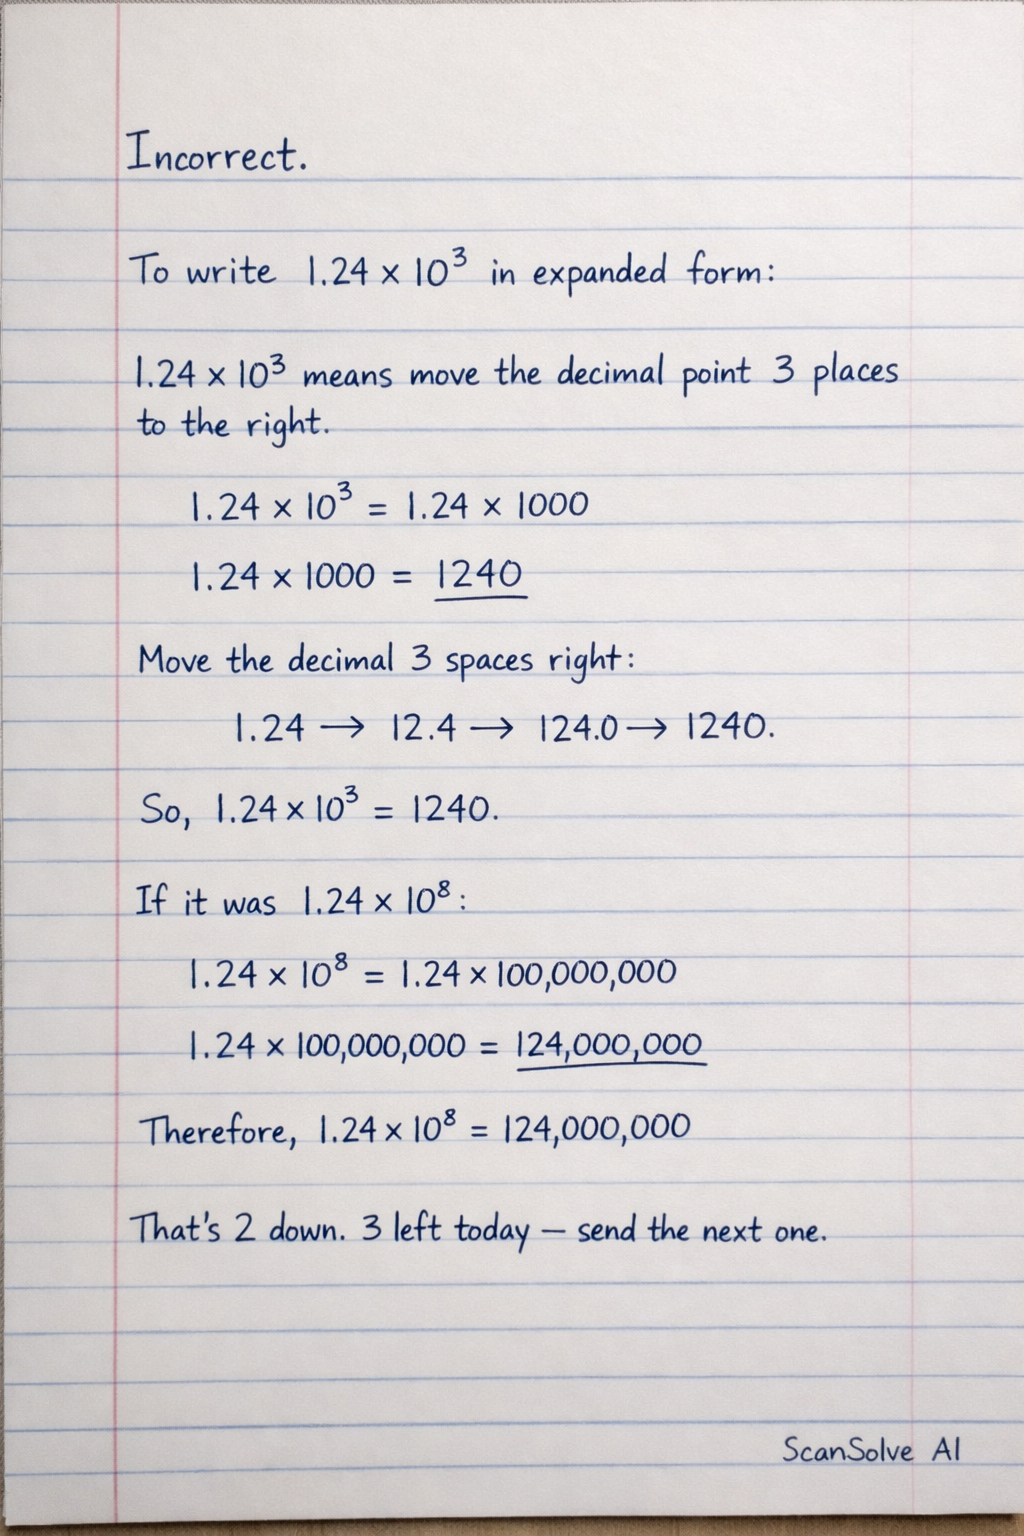 Incorrect.
To write 1.24 × 10³ in expanded form:
1.24 × 10³ means move the decimal point 3 places
to the right.
1.24 × 10³ = 1.24 × 1000
1.24 × 1000 = 1240
Move the decimal 3 spaces right:
1.24 → 12.4 → 124.0 → 1240.
So, 1.24 × 10³ = 1240.
If it was 1.24 × 10⁸:
1.24 × 10⁸ = 1.24 × 100,000,000
1.24 × 100,000,000 = 124,000,000
Therefore, 1.24 × 10⁸ = 124,000,000
That's 2 down. 3 left today – send the next one.
ScanSolve AI